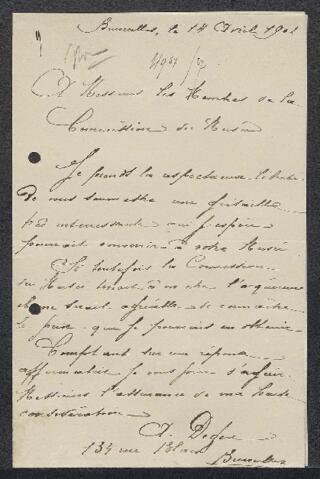 Bruxelles, le 14 Avril 1902
A Messieurs les Membres de la
Commission du Musée
Je prends la respectueuse liberté
de vous soumettre une
très intéressante qui j'espère
pourrait convenir à votre Musée
Si toutefois la Commission
du Musée tenait à en être l'acquéreur
il me serait agréable de connaître
le prix que je pourrais en obtenir
Comptant sur une réponse
affirmative je vous prie d'agréer
Messieurs l'assurance de ma haute
considération
A.
134 rue
Bruxelles